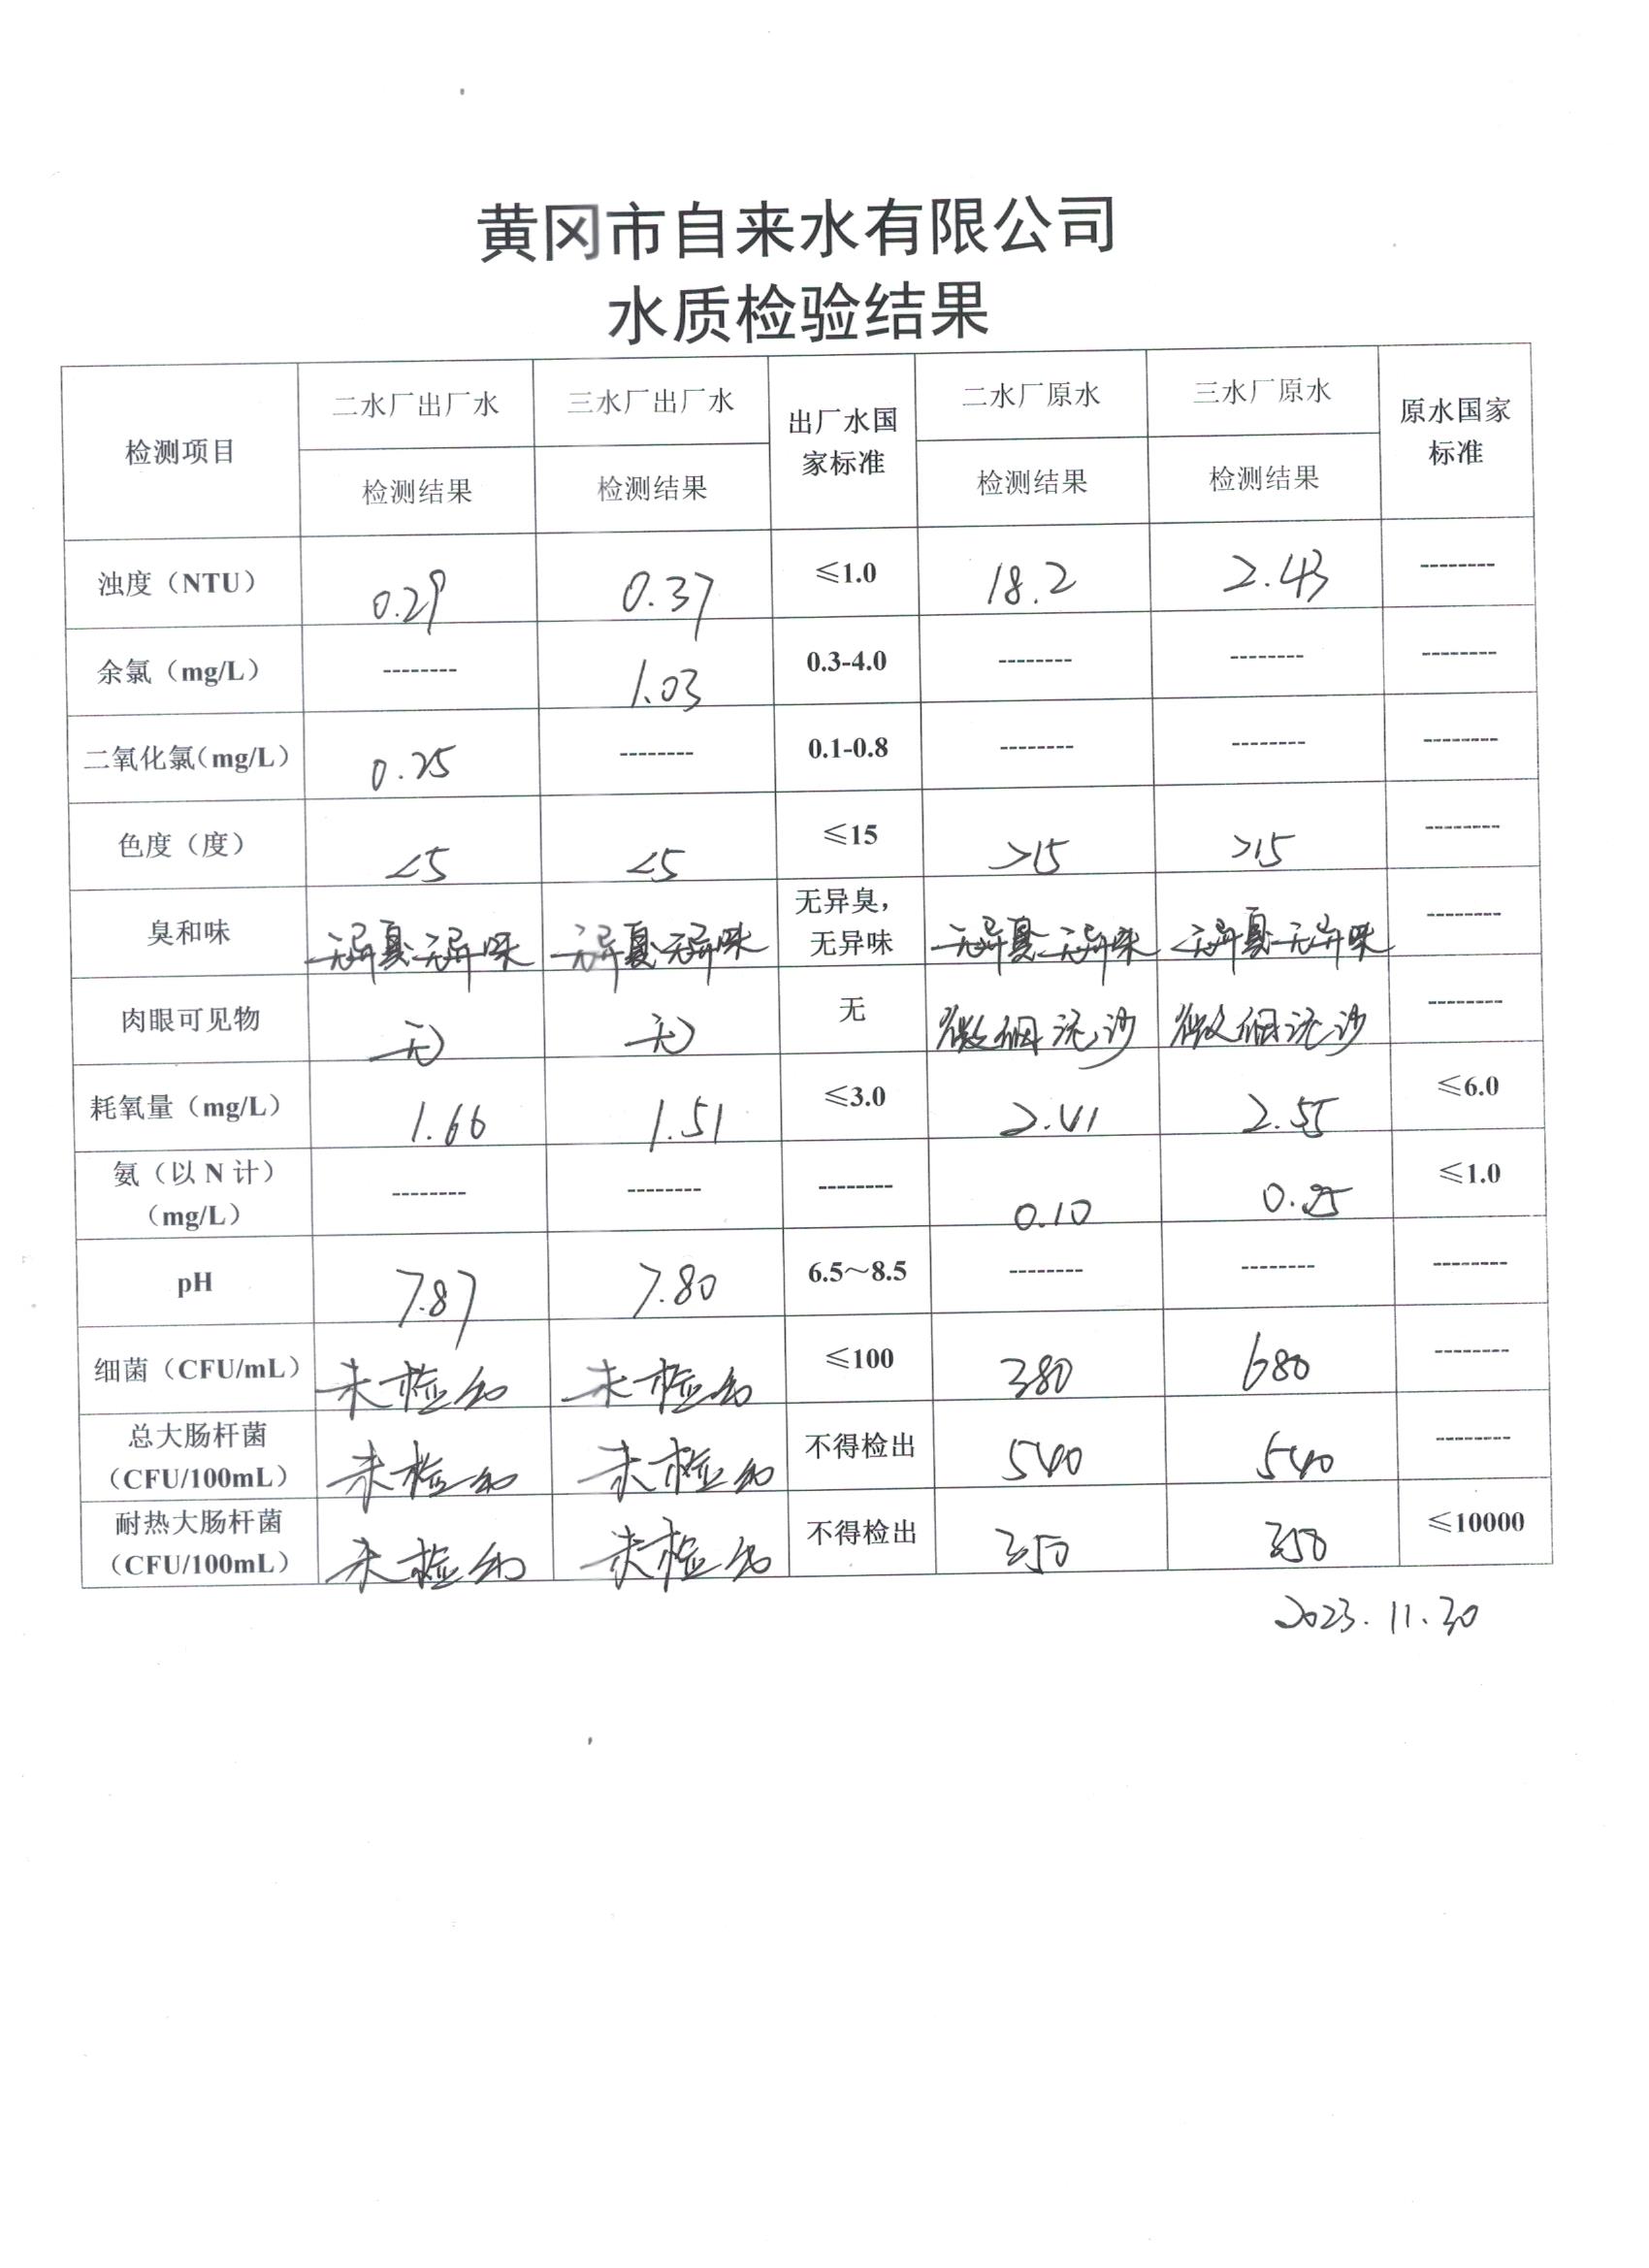 黄冈市自来水有限公司
水质检验结果
检测项目 二水厂出厂水 三水厂出厂水 出厂水国家标准 二水厂原水 三水厂原水 原水国家标准
检测结果 检测结果 检测结果 检测结果
浊度（NTU） 0.29 0.37 ≤1.0 18.2 2.43 --------
余氯（mg/L） -------- 1.03 0.3-4.0 -------- -------- --------
二氧化氯（mg/L） 0.25 -------- 0.1-0.8 -------- -------- --------
色度（度） <5 <5 ≤15 >15 >15 --------
臭和味 无异臭.无异味 无异臭.无异味 无异臭，无异味 无异臭.无异味 无异臭.无异味 --------
肉眼可见物 无 无 无 微细泥沙 微细泥沙 --------
耗氧量（mg/L） 1.66 1.51 ≤3.0 2.41 2.55 ≤6.0
氨（以 N 计）（mg/L） -------- -------- -------- 0.10 0.25 ≤1.0
pH 7.87 7.80 6.5～8.5 -------- -------- --------
细菌（CFU/mL） 未检出 未检出 ≤100 380 680 --------
总大肠杆菌（CFU/100mL） 未检出 未检出 不得检出 540 540 --------
耐热大肠杆菌（CFU/100mL） 未检出 未检出 不得检出 350 350 ≤10000
2023.11.30